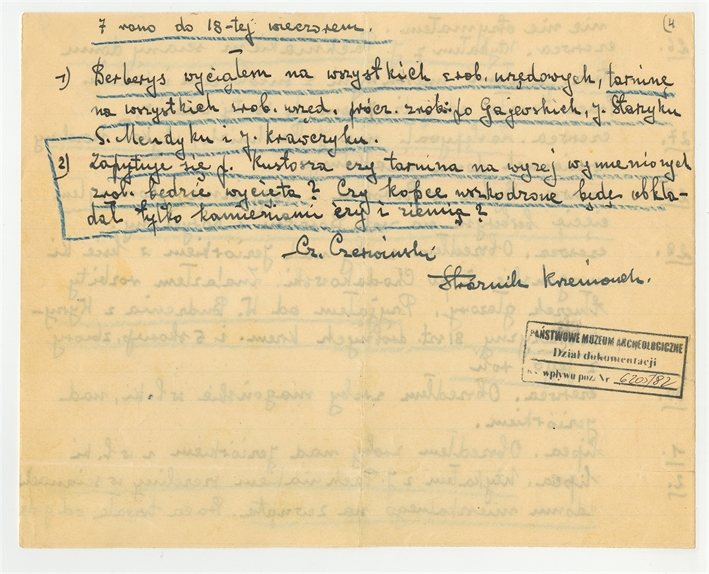 (4
7 rano do 18-tej wieczorem.
1) Berberys wyciąłem na wszystkich zrob. urzędowych, tarninę
na wszystkich zrob. urzęd. prócz. zrob. po Gajewskich, J. Stażyku
S. Mendyku i J. Krawczyku
2) Zapytuje się p. Kustosza czy tarnina na wyżej wymienionych
zrob. będzie wycięta? Czy kopce uszkodzone będę obkła-
dał tylko kamieniami czy i ziemią?
Cz. Czerwiński
Stróżnik Krzemionek.
PAŃSTWOWE MUZEUM ARCHEOLOGICZNE
Dział dokumentacji
wpływu poz. Nr 620/82